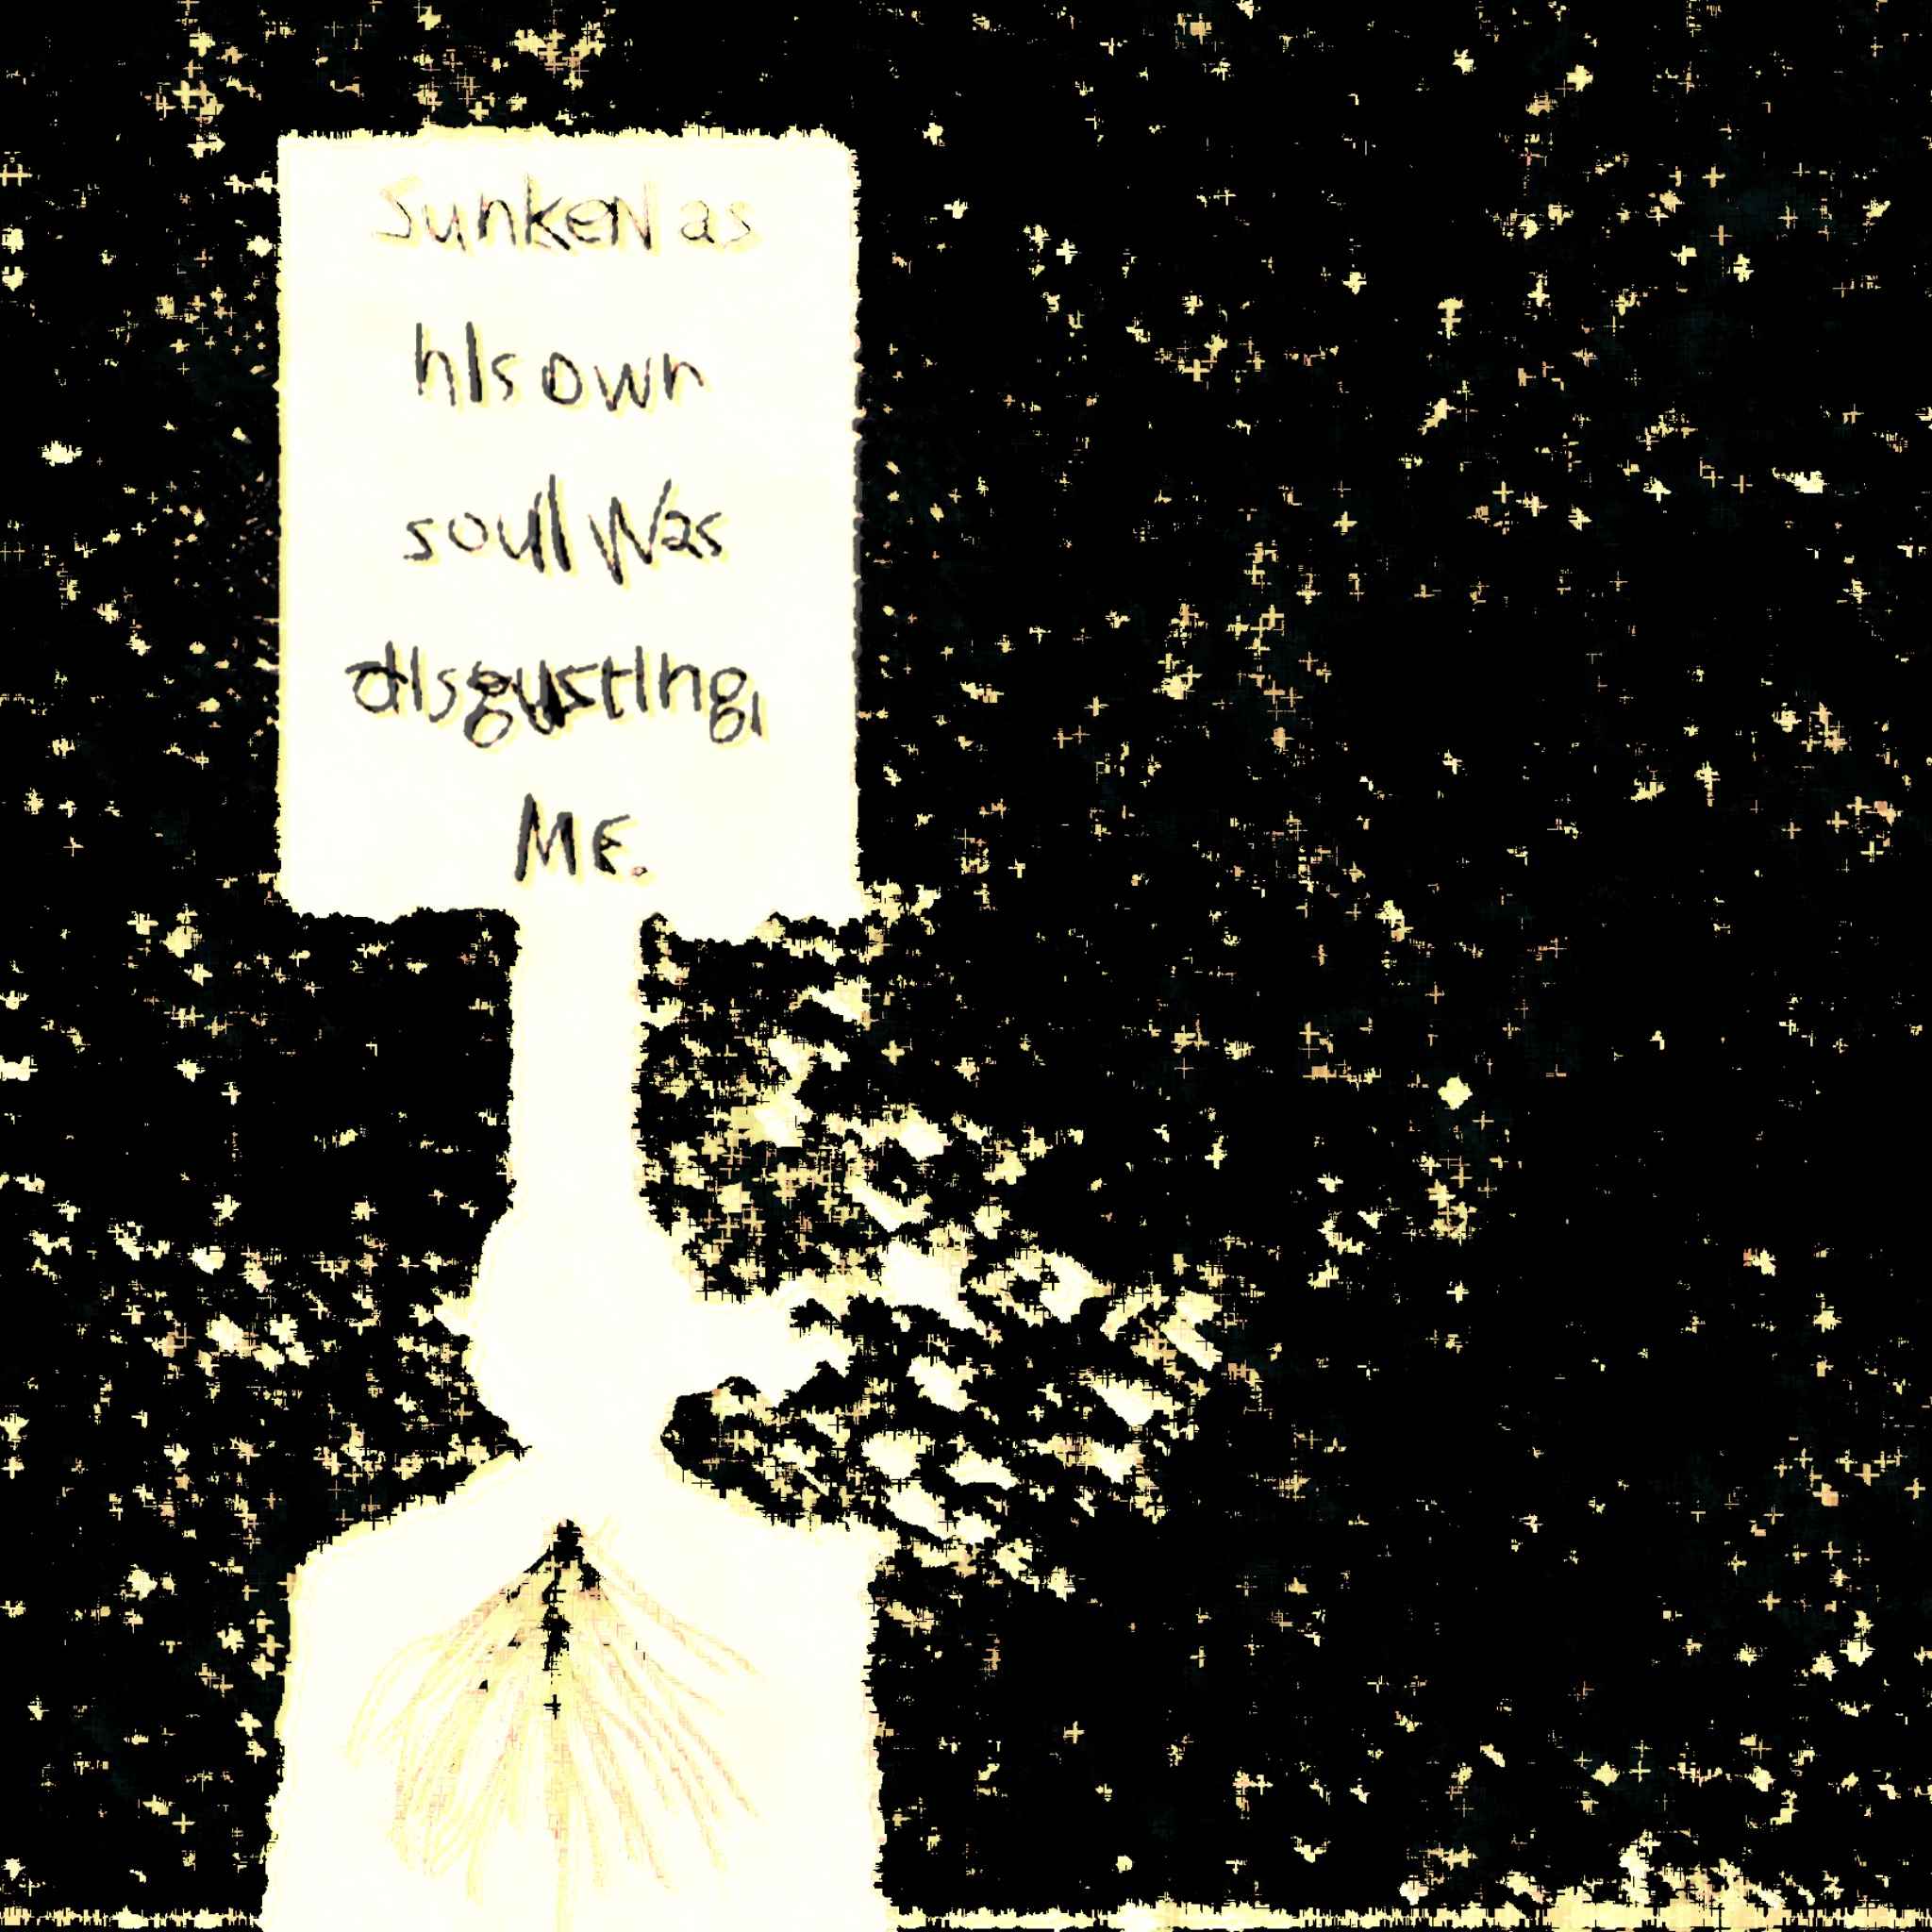 Sunken as
his own
soul was
disgusting,
ME.